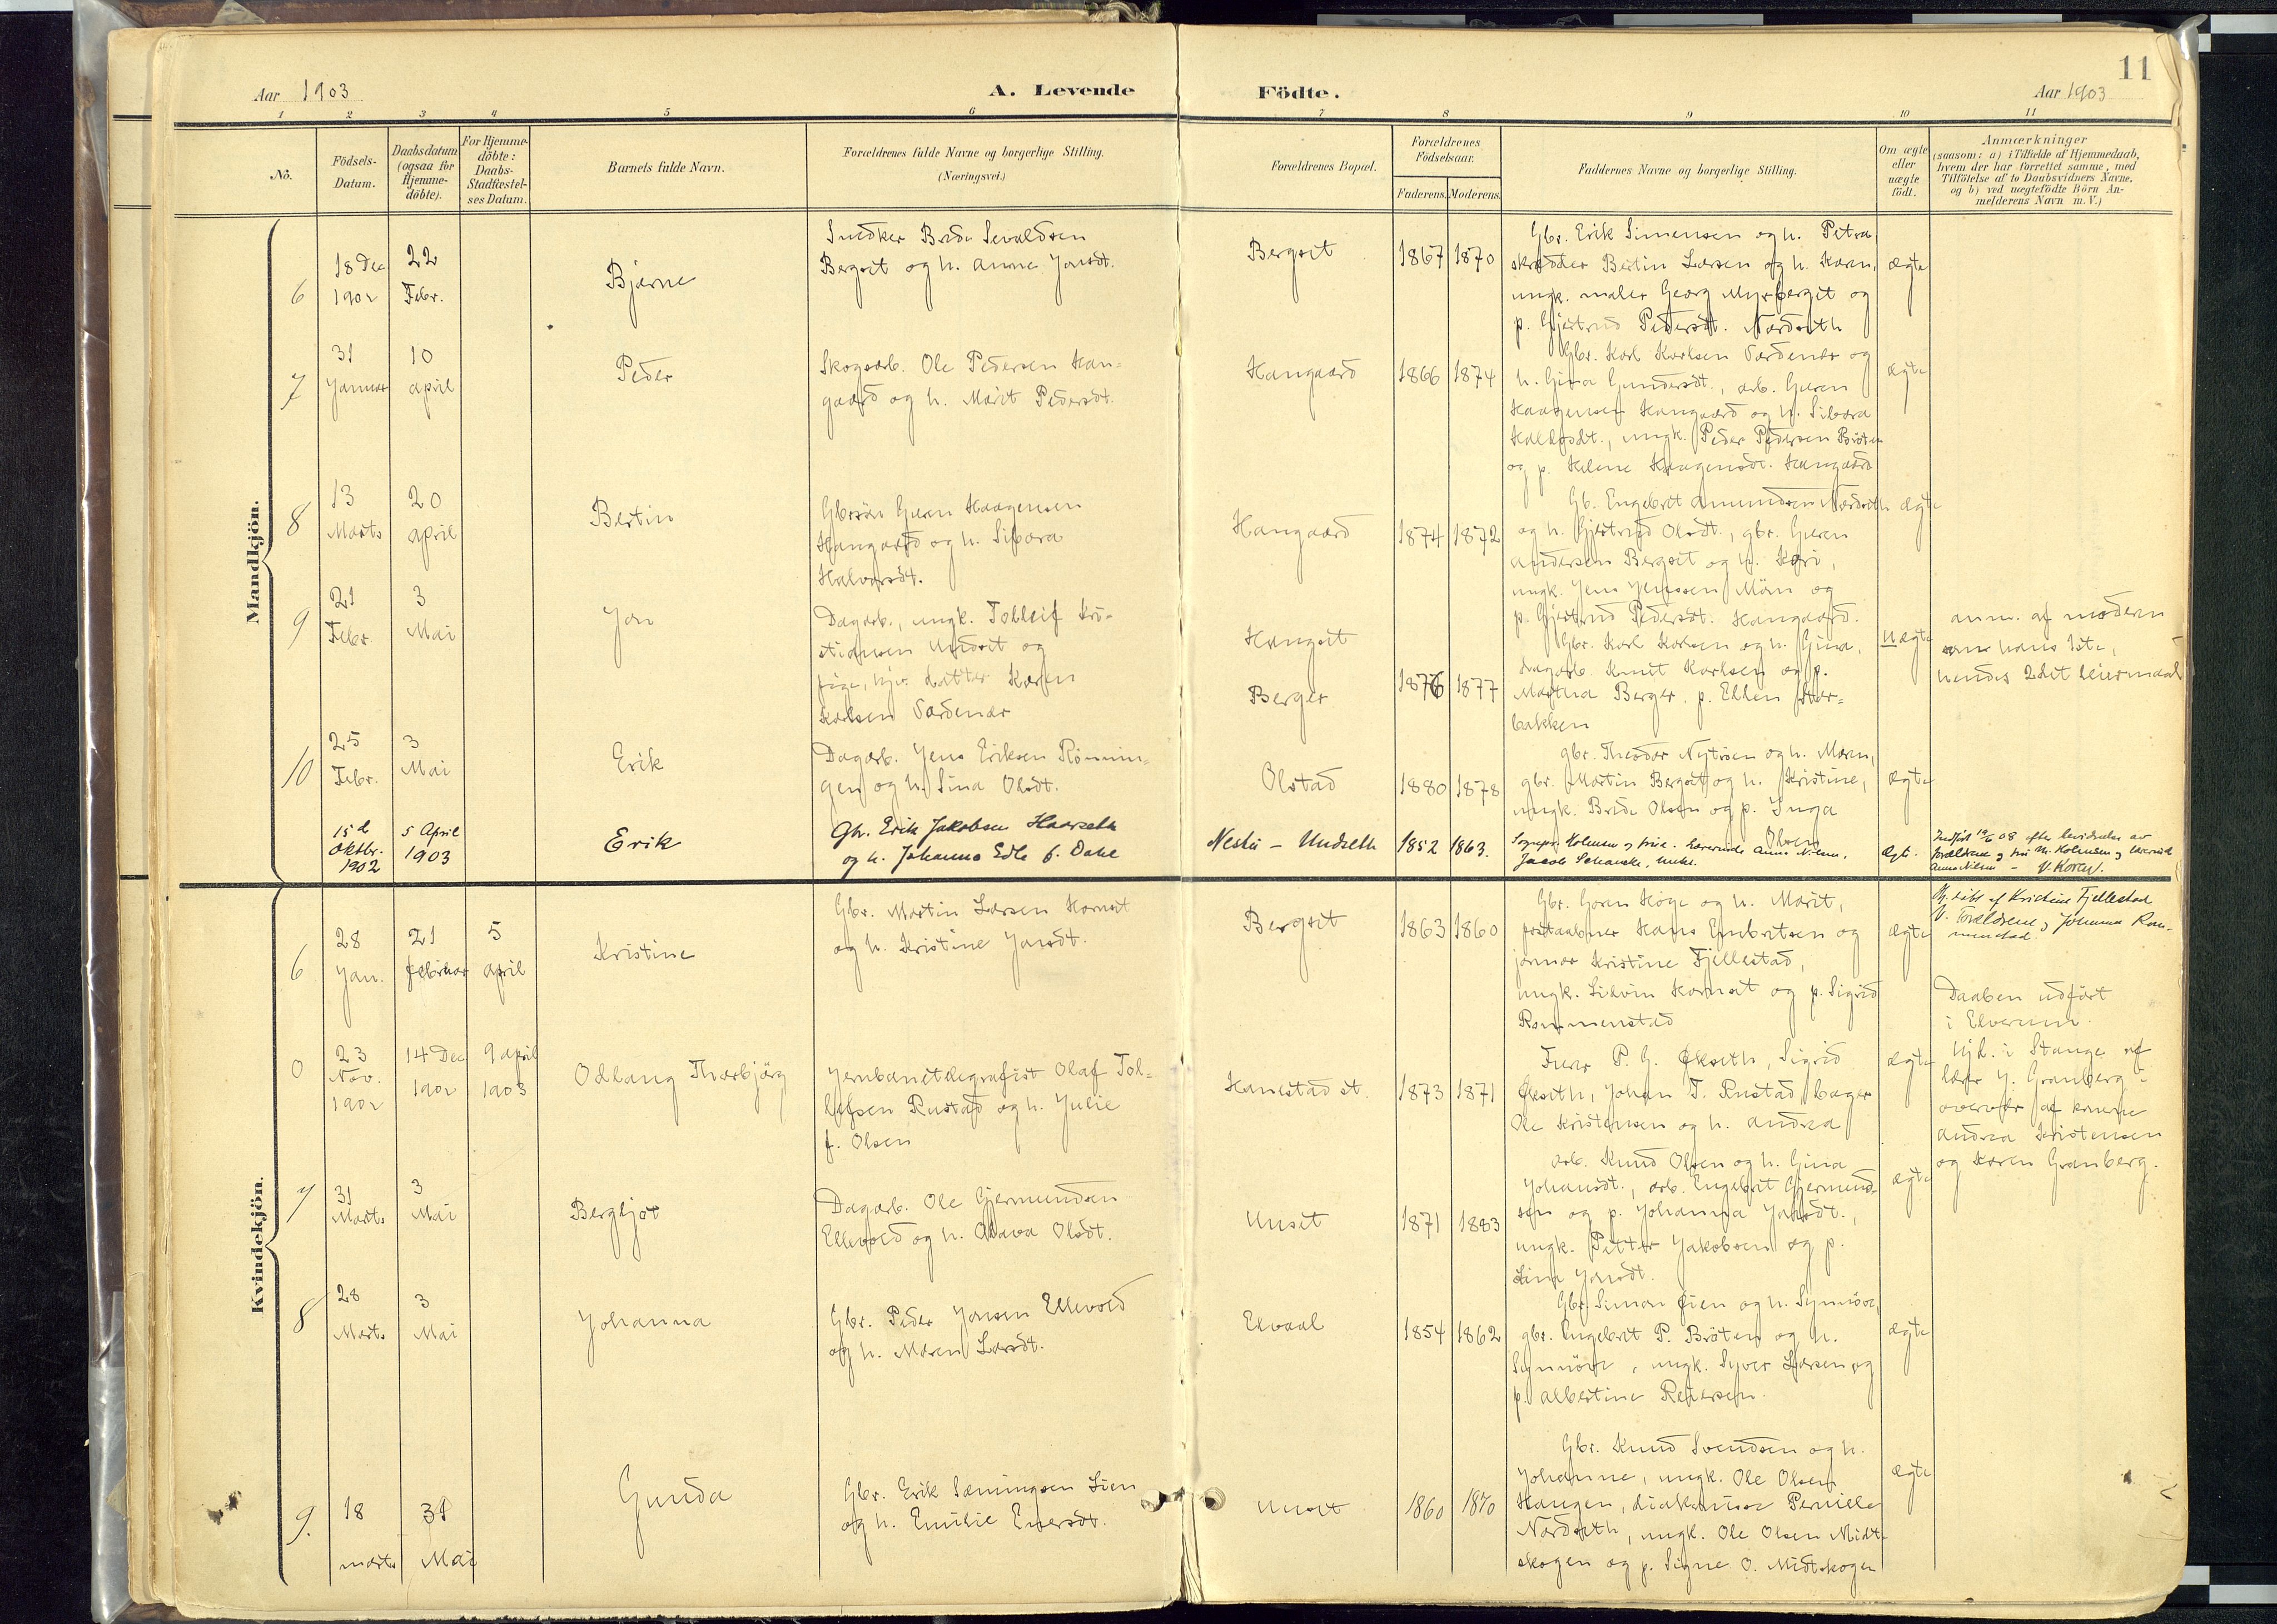 11
Aar 1903
A. Levende
Födte.
Aar 1903
1 2 3 4 5 6 7 8 9 10 11
No.
Födsels-
Datum.
Daabsdatum
(ogsaa for
Hjemme-
döbte).
For Hjemme-
döbte:
Daabs-
Stadfæstel-
ses Datum.
Barnets fulde Navn.
Forældrenes fulde Navne og borgerlige Stilling.
(Næringsvei.)
Forældrenes Bopæl.
Forældrenes
Födselsaar.
Faderens. Moderens.
Faddernes Navne og borgerlige Stilling.
Om ægte
eller
uægte
födt.
Anmærkninger
(saasom: a) i Tilfælde af Hjemmedaab,
hvem der har forrettet samme, med
Tilföielse af to Daabsvidners Navne.
og b) ved uegtefödte Börn An-
melderens Navn m. V.)
Mandkjön.
6
18 Dec
1902
22
Febr.
Bjarne
Snedker Brede Sevaldsen
Bergset og h. Anne Jonsdt.
Bergset
1867 1870
Gbr. Erik Simensen og h. Petra
skrædder Bertin Larsen og h. Karen,
ungk. maler Georg Myrberget og
p. Gjertrud Pedersdt. Nordseth
ægte
7
31
Januar
10
april
Peder
Skogsarb. Ole Pedersen Han-
gaard og h. Marit Pedersdt.
Hangaard
1866 1874
Gbr. Karl Karlsen Vardenær og
h. Gina Gundersdt., arb. Gøren
Haagensen Hangaard og h. Sibora
, ungk. Peder Pedersen Bröten
og p. Helene Haagensdt. Hangaard
ægte
8
13
Marts
20
april
Bertin
Gbrsön Gøren Haagensen
Hangaard og h. Sibora
Halvorsdt.
Hangaard
1874 1872
Gb. Engebret Amundsen Nordseth
og h. Gjertrud Olsdt., gbr. Gøren
Andersen Bergset og h. Kari,
ungk. Jens Jenssen Moen og
p. Gjertrud Pedersdt. Hangaard.
ægte
9
21
Febr.
3
Mai
Jon
Dagarb., ungk. Tolleif Kri-
stiansen Undset og
pige, hjv. datter Karen
Karlsen Vardenær
Hangset
Berger
1876 1877
Gbr. Karl Karlsen og h. Gina,
dagarb. Knut Karlsen og p.
Martha Berger. p. Ellen Stor-
bakken
uægte
anm. af moderen
som hans 1ste,
hendes 2det leiermaal
10
25
Febr.
3
Mai
Erik
Dagarb. Jens Eriksen Rønnin-
gen og h. Sina Olsdt.
Olstad
1880 1878
gbr. Theodor Nytröen og h. Maren,
gbr. Martin Bergset og h. Kristine,
ungk. Brede Olsen og p. Inga
Olsen
ægte
15d
Oktbr.
1902
5 April
1903
Erik
Gbr. Erik Jakobsen Haarseth
og h. Johanna Edle f. Dahl
Nesti - Undseth
1852 1863.
Sognepr. Holmsen og frue. Lærerinde Anna Nilsen,
Jacob Schancke, ungk.
ægte.
Indført 19/6 08 efter bevidnelse av
forældrene og fru M. Holmsen og lærerinde
Anna Nilsen - V. Koren.
Kvindekjön.
6
28
Jan.
21
februar
5
april
Kristine
Gbr. Martin Larsen Hornset
og h. Kristine Jonsdt.
Bergset
1863 1860
Gbr. Goren Höge og h. Marit,
postaabner Hans Embretsen og
jormor Kristine Fjellestad,
ungk. Sivin Hornset og p. Sigrid
Rommenstad
ægte
Hj. döbt af Kristine Fjellestad
V. Forældrene og Johanna Rom-
menstad.
0
23
Nov.
1902
14 Dec
1902
9 april
1903
Odlaug Thorbjörg
Jernbanetelegrafist Olaf Tol-
lefsen Rustad og h. Julie
f. Olsen
Hanestad st.
1873 1871
Fruer P. G. Økseth, Sigrid
Økseth, Johan T. Rustad, bager
Ole Kristensen og h. Andrea
ægte
Daaben udført
i Elverum.
Hjd. i Stange af
lærer J. Granberg i
overvær af konerne
Andrea Kristensen
og Karen Granberg.
7
31
Marts
3
Mai
Bergljot
Dagarb. Ole Gjermundsen
Ellevold og h. Olava Olsdt.
Unset
1871 1883
arb. Knud Olsen og h. Gina
Johansdt., arb. Engebret Gjermund-
sen og p. Johanna Jonsdt.,
ungk. Petter Jakobsen og p.
Lina Jonsdt.
ægte
8
28
Marts
3
Mai
Johanna
Gbr. Peder Jonsen Ellevold
og h. Maren Larsdt.
Elvaal
1854 1862
Gbr. Simon Öien og h. Synnöve,
gbr. Engebret P. Bröten og h.
Synnöve, ungk. Syver Larsen og
p. Albertine Pedersen.
ægte
9.
18
marts
31
Mai
Gunda
Gbr. Erik Sæmingsen Lien
og h. Emilie Eversdt.
Unset
1860 1870
Gbr. Knud Svendsen og h.
Johanne, ungk. Ole Olsen
Haugen, diakonisse Pernille
Nordseth, ungk. Ole Olsen Midt-
skogen og p. Signe O. Midtskogen
ægte